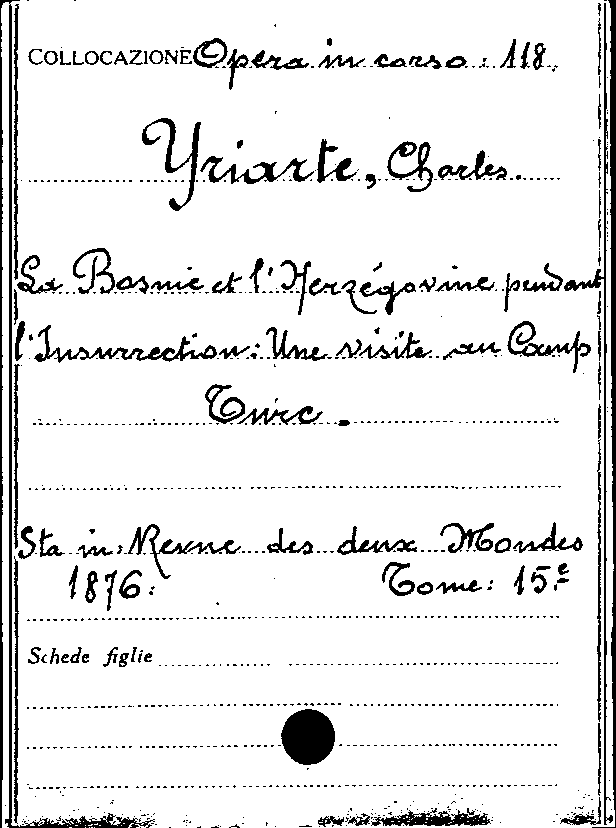 COLLOCAZIONE Opera in corso: 118.
Yriarte, Charles.
La Bosnie et l'Herzégovine pendant
l'Insurrection: Une visite au Camp
Turc.
Sta in: Revue des deux Mondes
1876: Tome: 15e
Schede figlie